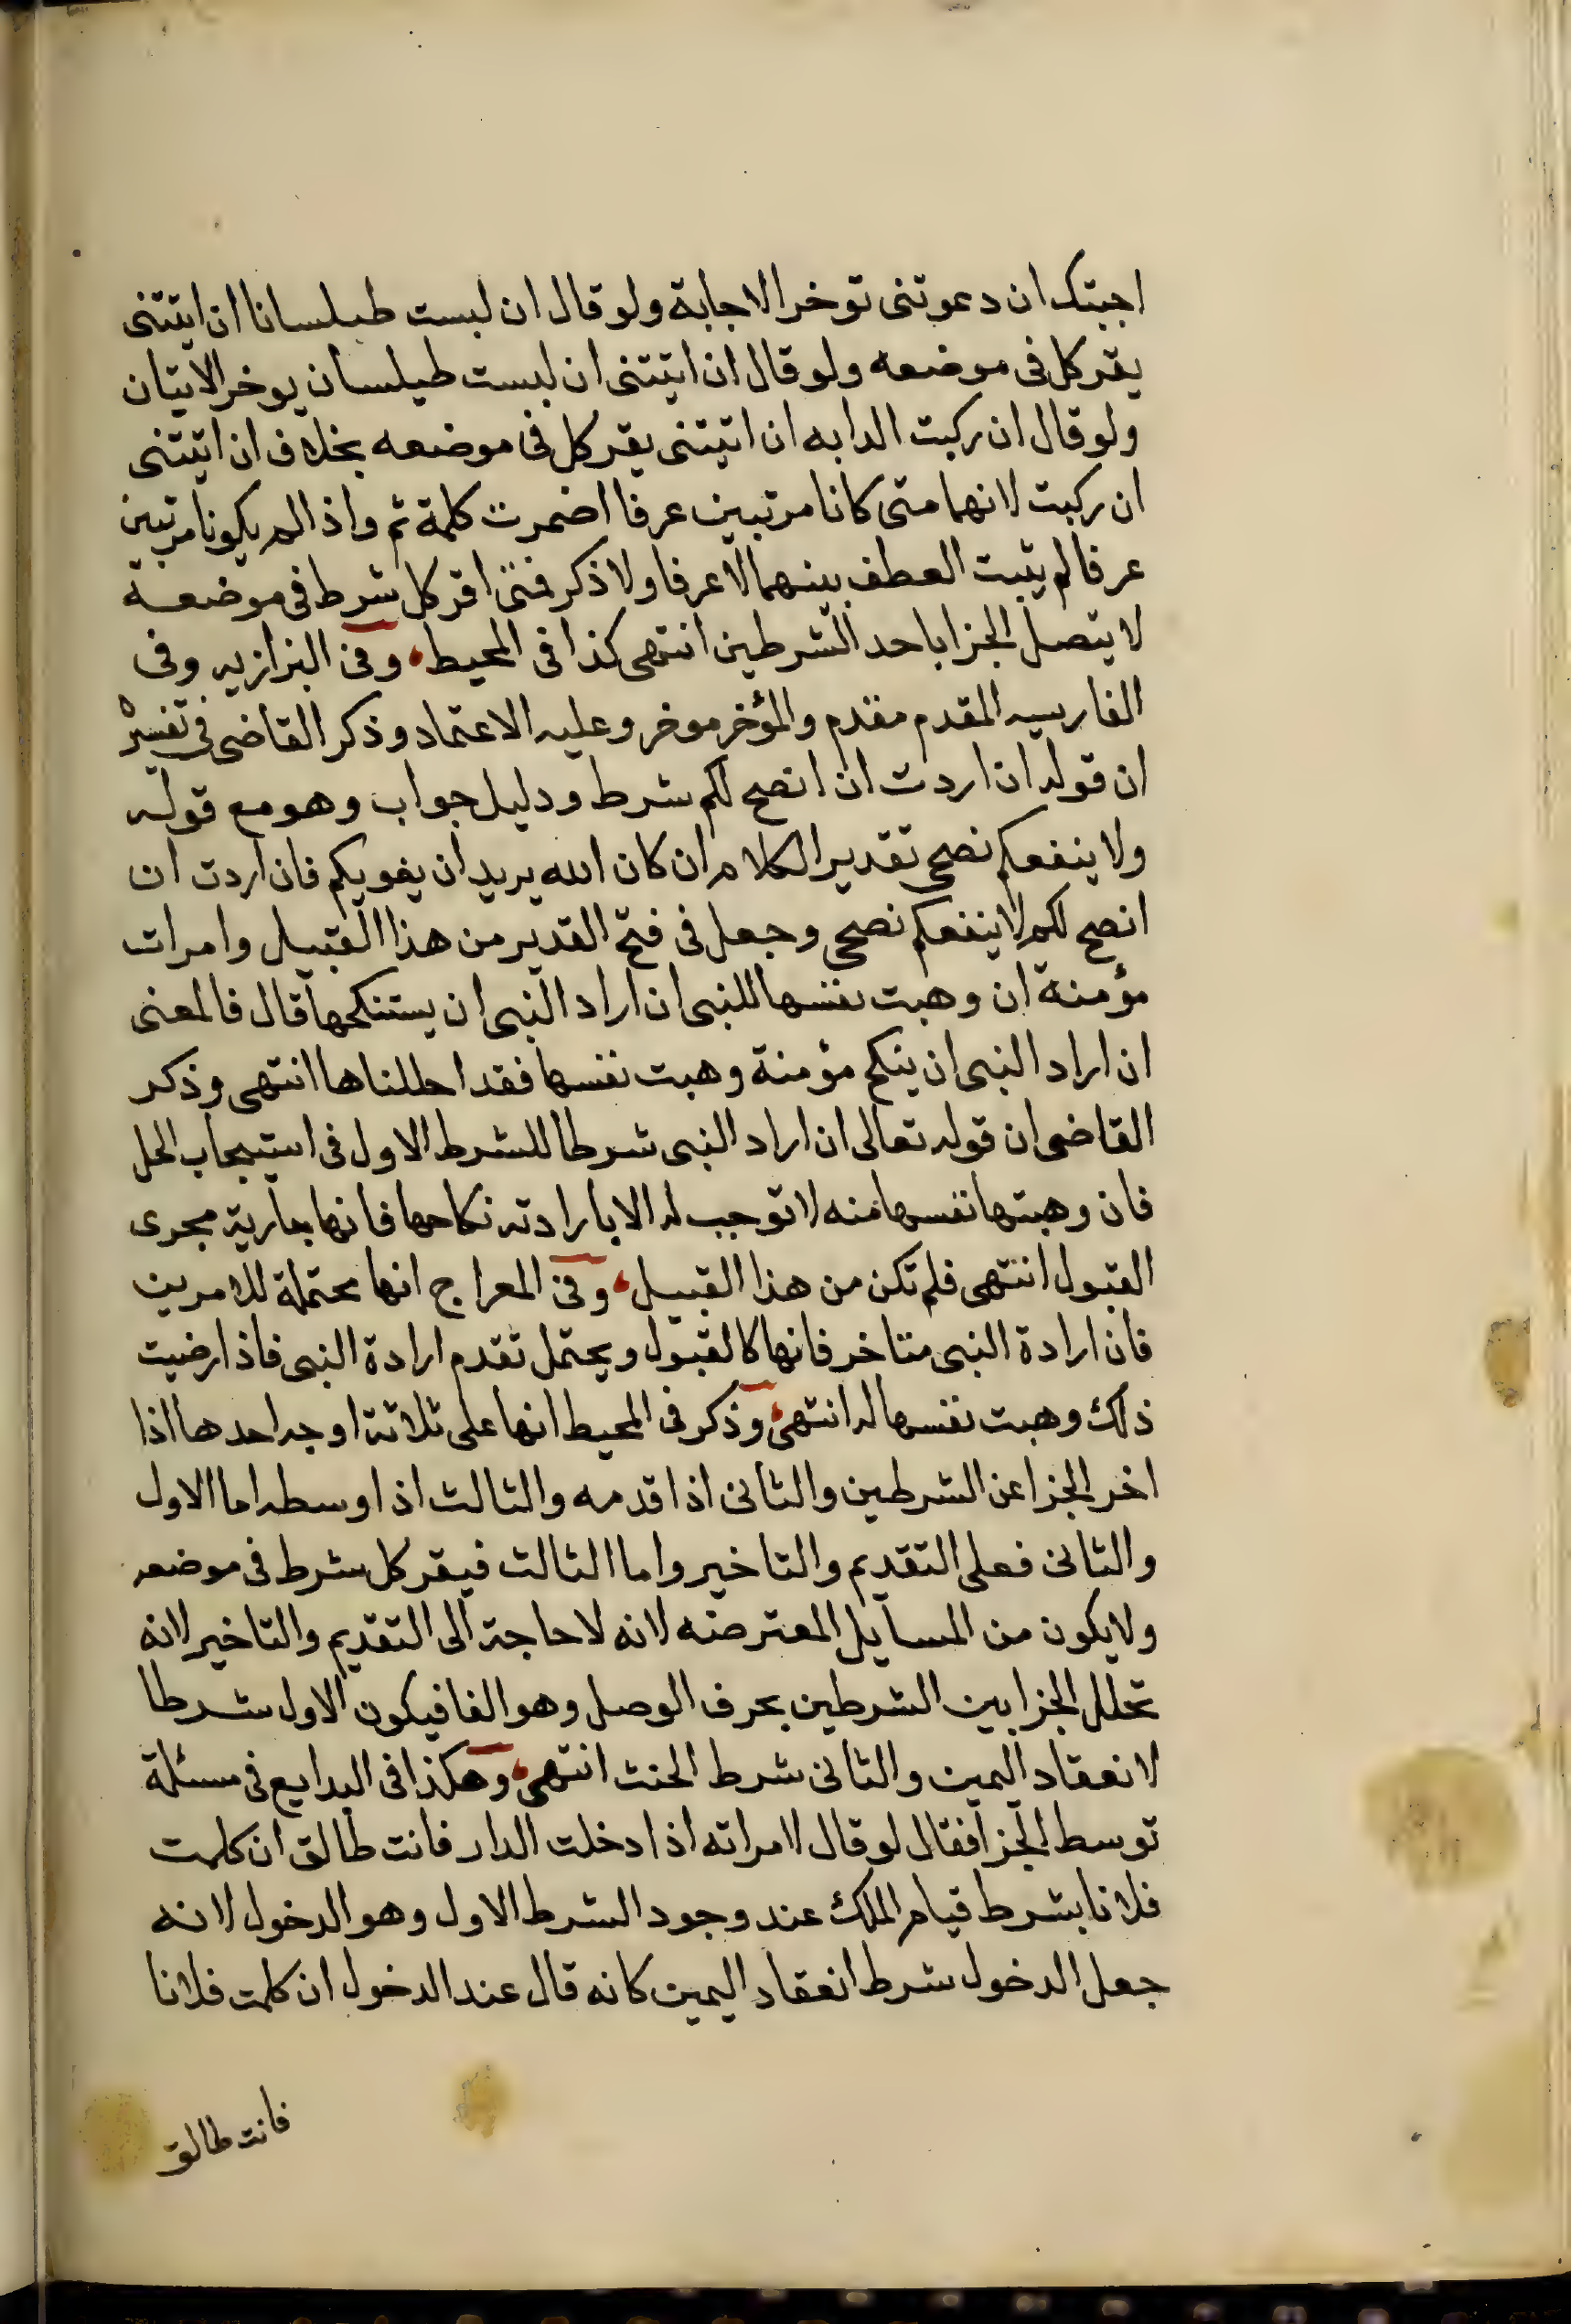 اجبتك ان دعوتنى توخر الاجابة ولو قال ان لبست طيلسانا ان اتيتنى
يقر كل فى موضعه ولو قال ان اتيتنى ان لبست طيلسان يوخر الاتيان
ولو قال ان ركبت الدابه ان اتيتنى يقر كل فى موضعه بخلاف ان اتيتنى
ان ركبت لانهما متى كانا مرتبين عرفا اضمرت كلمة ثم واذا لم يكونا مرتبين
عرفا لم يثبت العطف بينهما لا عرفا ولا ذكر فمتى اقر كل شرط فى موضعة
لا يتصل الجزا باحد الشرطين انتهى كذا فى المحيط، وفى البزازيه وفى
الفارسيه المقدم مقدم والمؤخر موخر وعليه الاعتماد وذكر القاضى فى تفسيره
ان قوله ان اردت ان انصح لكم شرط ودليل جواب وهو مع قوله
ولا ينفعكم نصحى تقدير الكلام ان كان الله يريد ان يغويكم فان اردت ان
انصح لكم لا ينفعكم نصحى وجعل فى فتح القدير من هذا القبيل وامرات
مؤمنة ان وهبت نفسها للنبى ان اراد النبى ان يستنكحها قال فالمعنى
ان اراد النبى ان ينكح مؤمنة وهبت نفسها فقد احللناها انتهى وذكر
القاضى ان قوله تعالى ان اراد النبى شرطا للشرط الاول فى استيجاب الحل
فان وهبتها نفسها منه لا توجب له الا بارادته نكاحها فانها جارية مجرى
القبول انتهى فلم تكن من هذا القبيل، وفى المعراج انها محتملة للامرين
فان ارادة النبى متاخر فانها كالقبول ويحتمل تقدم ارادة النبى فاذا رضيت
ذلك وهبت نفسها له انتهى، وذكر فى المحيط انها على ثلاثة اوجه احدها اذا
اخر الجزا عن الشرطين والثانى اذا قدمه والثالث اذا وسطه اما الاول
والثانى فعلى التقديم والتاخير واما الثالث فيقر كل شرط فى موضعه
ولا يكون من المسايل المعترضه لانه لا حاجة الى التقديم والتاخير لانه
تخلل الجزا بين الشرطين بحرف الوصل وهو الفا فيكون الاول شرطا
لانعقاد اليمين والثانى شرط الحنث انتهى، وهكذا فى البدايع فى مسئلة
توسط الجزا فقال لو قال لامراته اذا دخلت الدار فانت طالق ان كلمت
فلانا بشرط قيام الملك عند وجود الشرط الاول وهو الدخول لانه
جعل الدخول شرط انعقاد اليمين كانه قال عند الدخول ان كلمت فلانا
فانت طالق